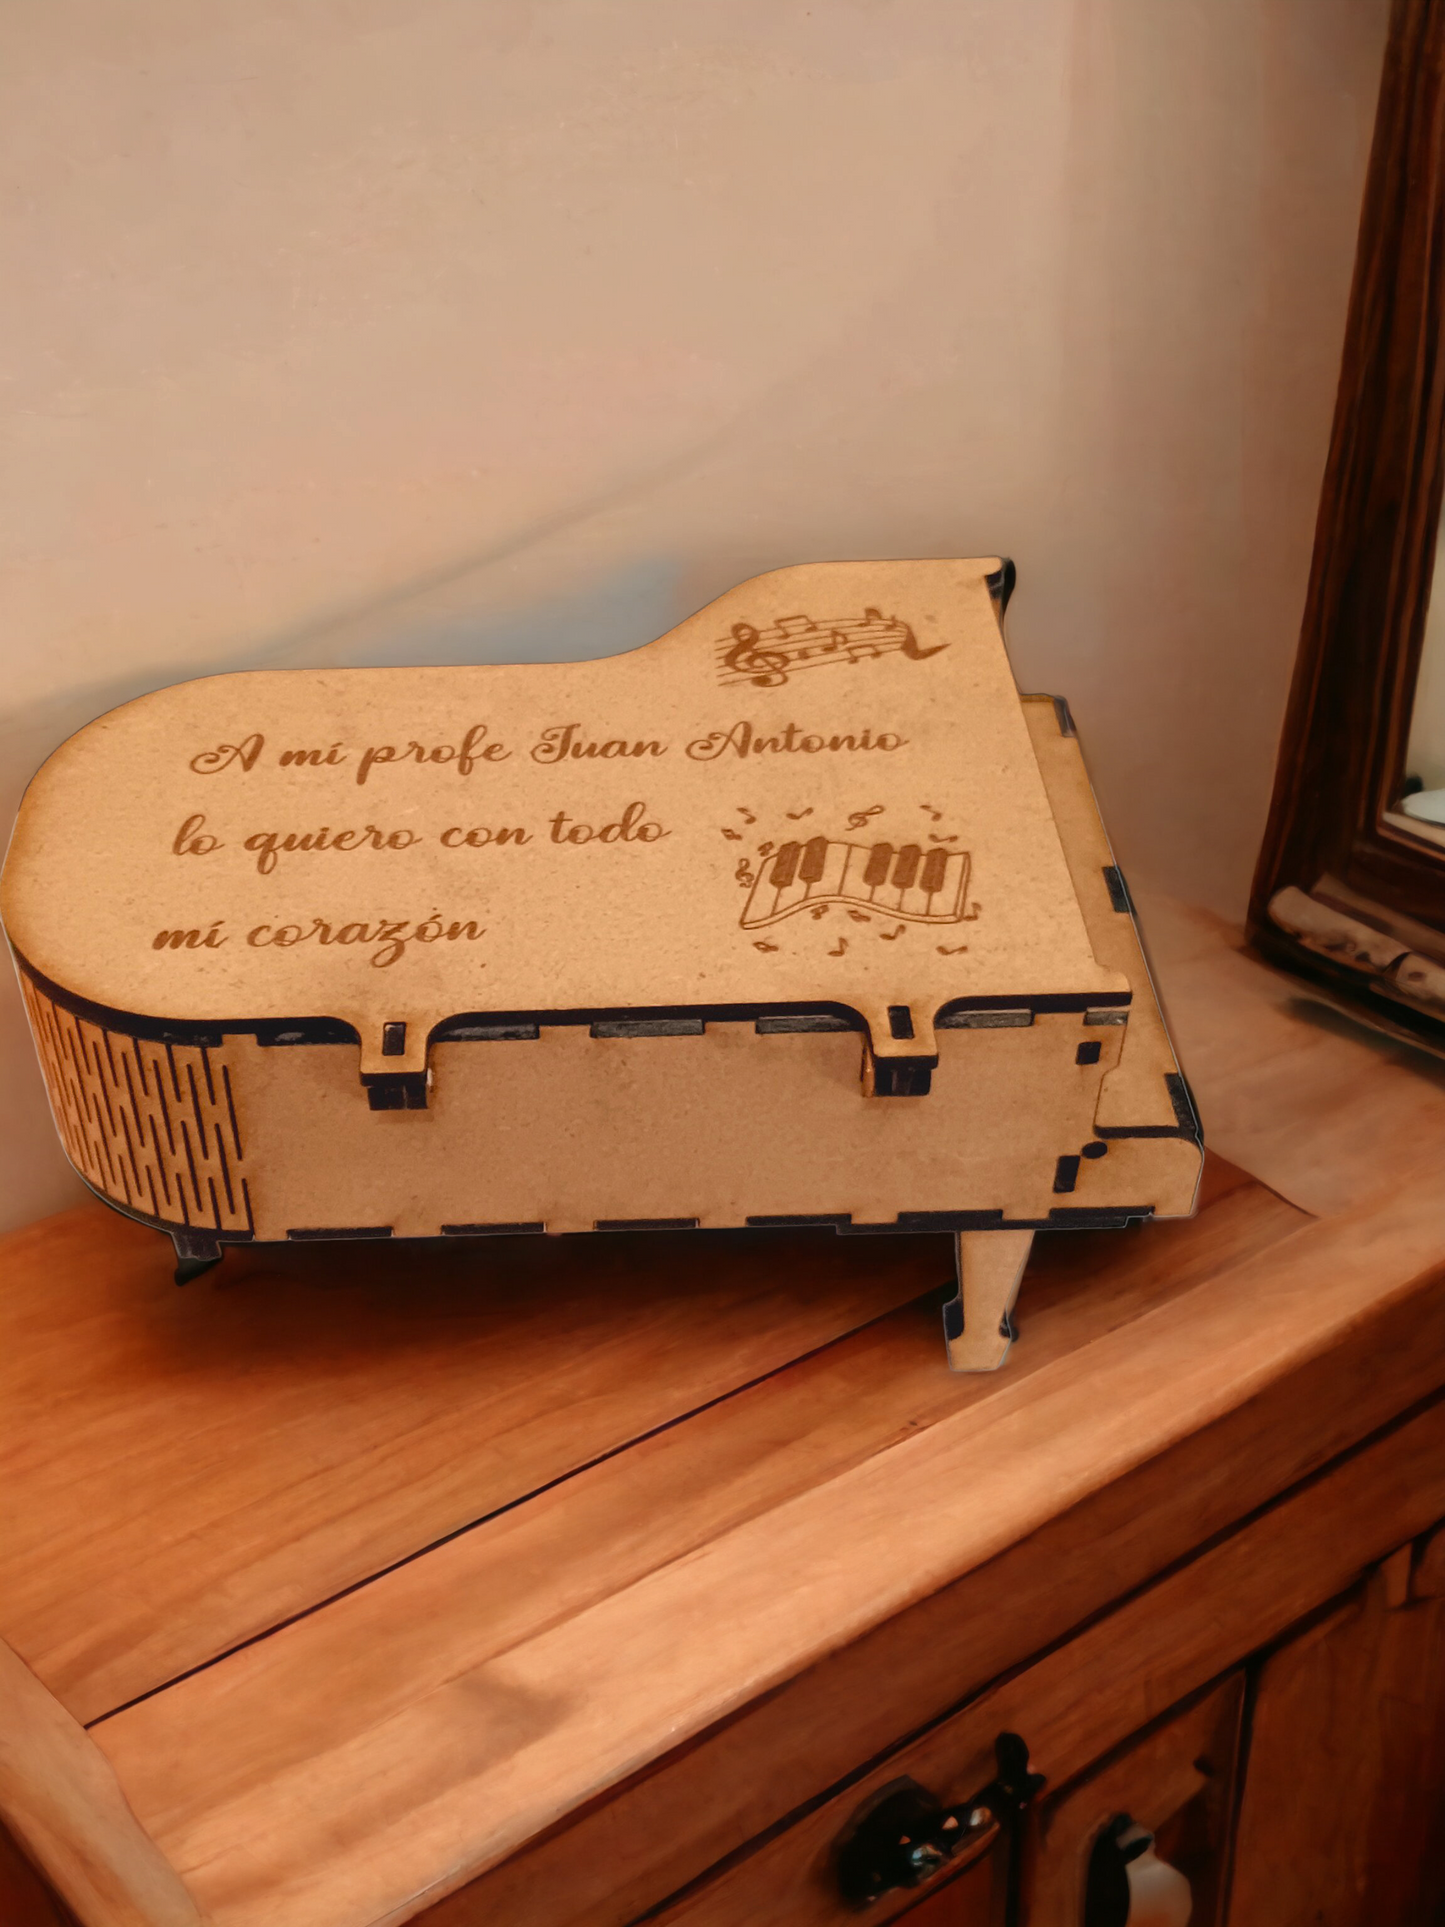 A mi profe Juan Antonio
lo quiero con todo
mi corazón